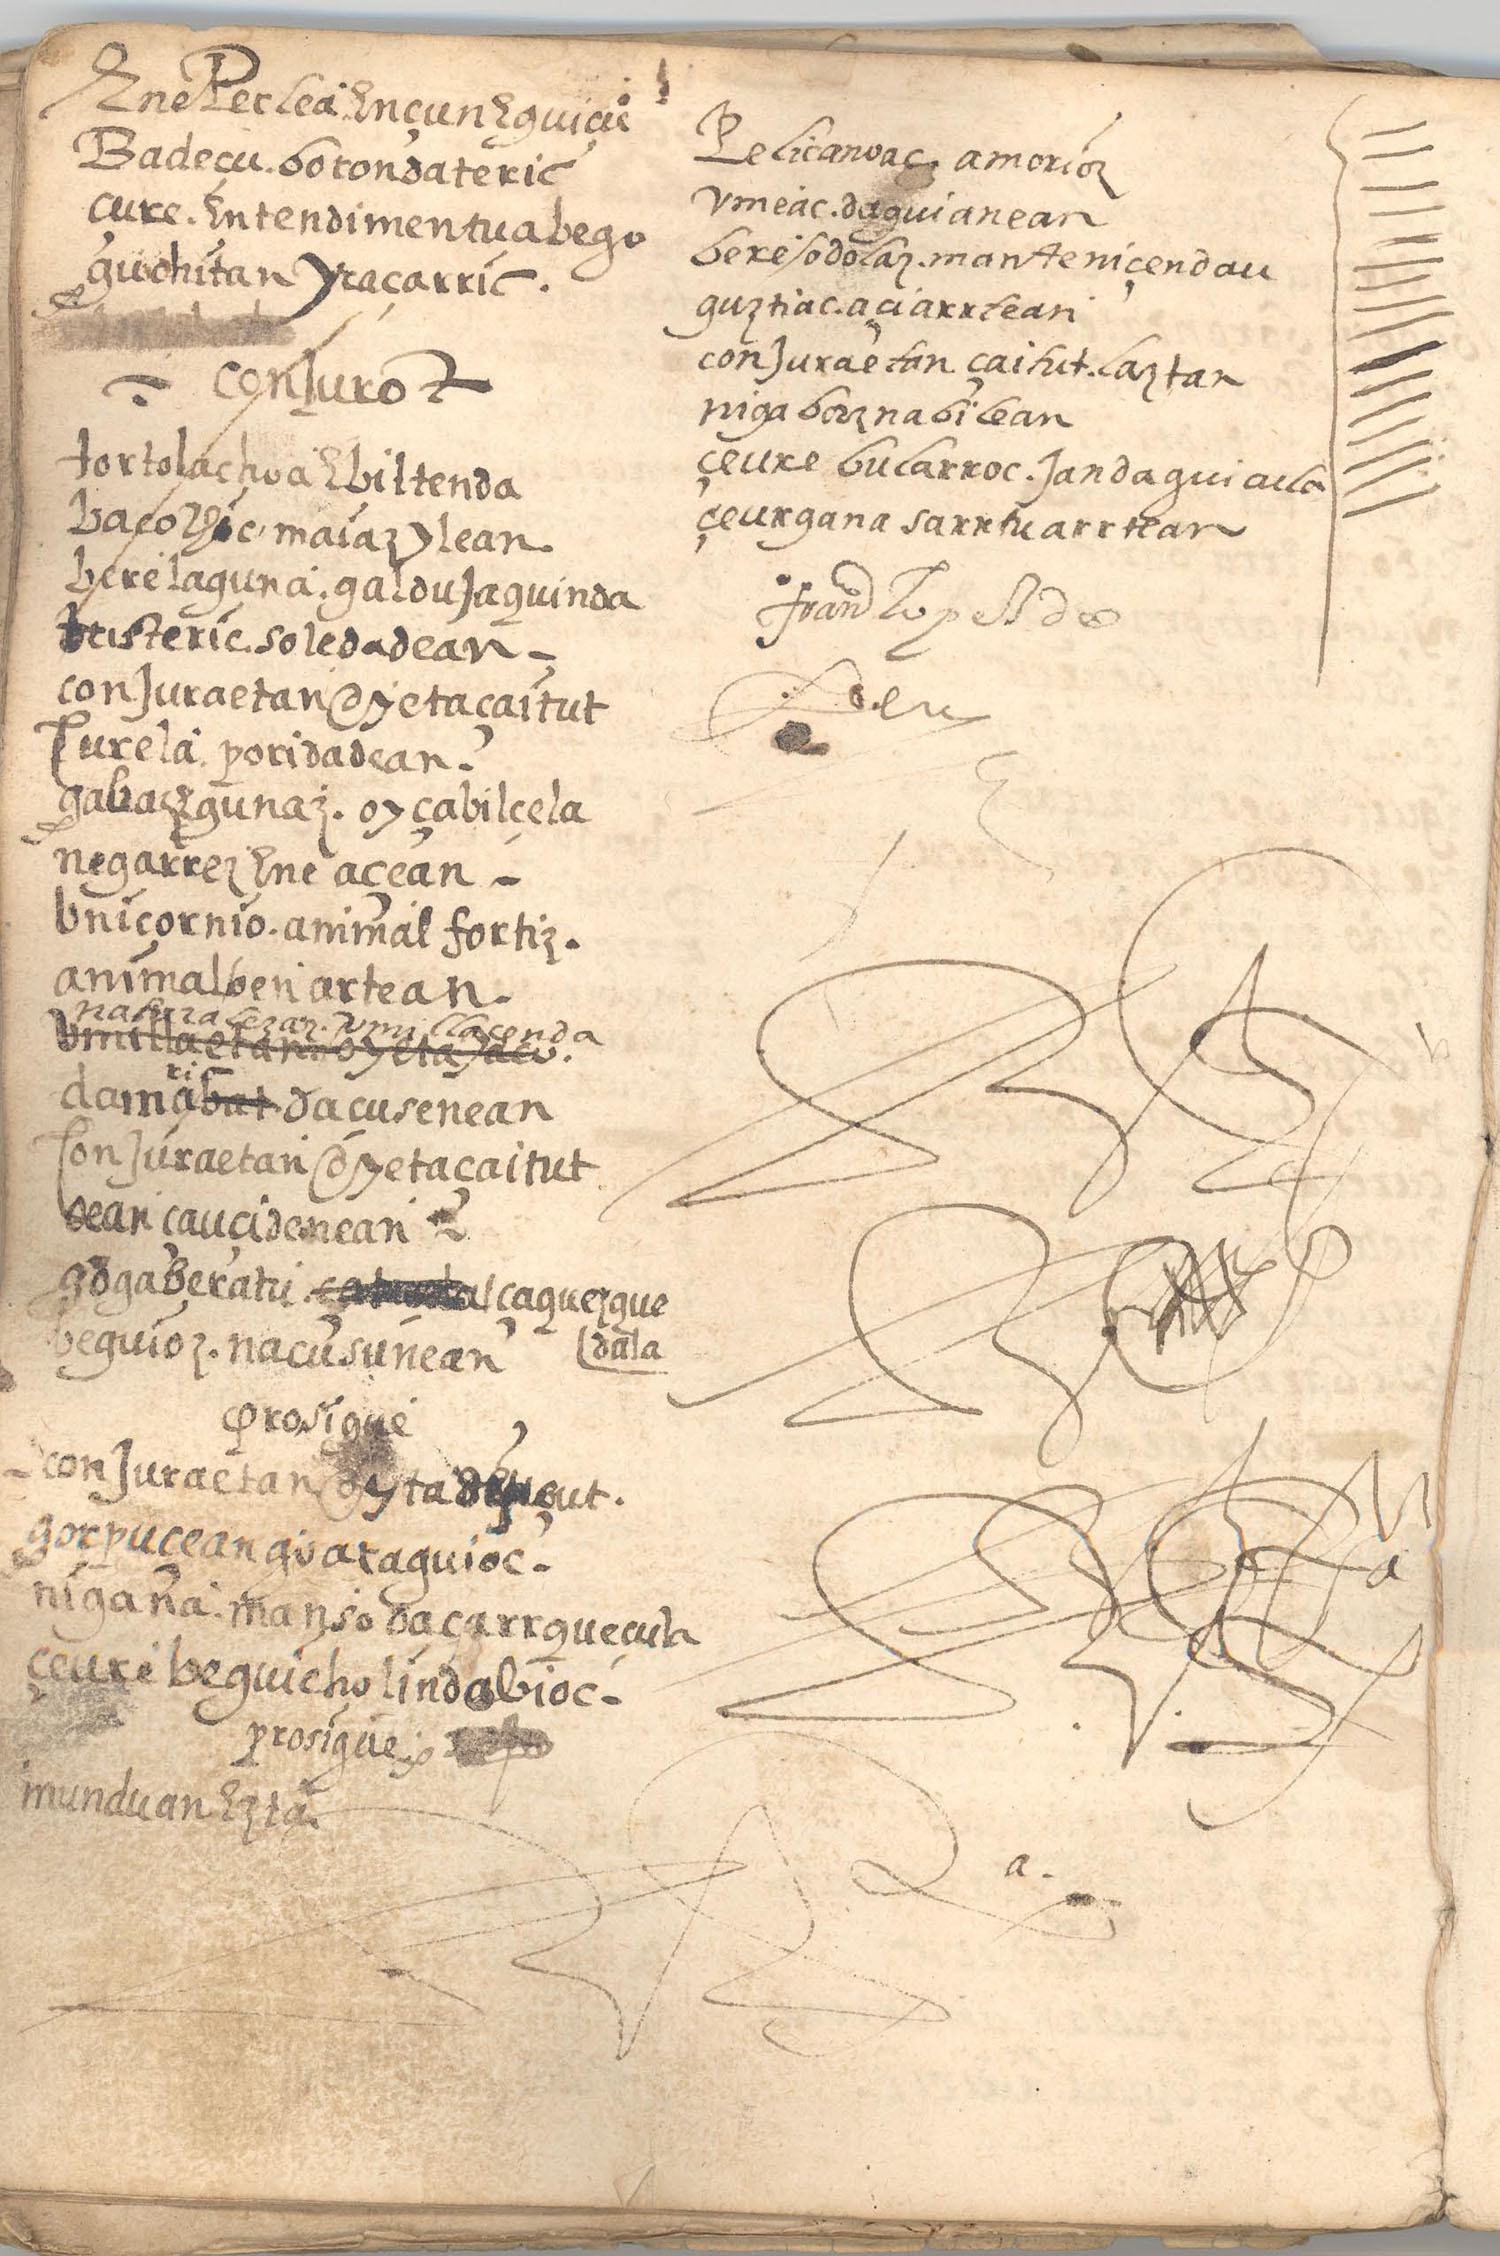 Ene Perlea Ençun Eguiçu
Badeçu. borondateric
çure. Entendimentua bego
guichitan yraçarric.
conJuro 2
tortolachoa Ebiltenda
bacorric, maiaz ylean.
bere laguna. galduJaquinda
tristeric. soledadean
conJuraetan oy eta çaitut
curela poridadean.
gabaz egunaz. oy çabilçela
negarrez Ene açean
bnicornio. animal fortiz.
animalben artean.
naturalezaz. vmillaçenda
vmillaetan oy eta Jaco.
damari bat dacusenean
conJuraetan oy eta çaitut
ean çauçidenean
gogaberatu çaquezque
dala
beguioz. nacusunean
prosigue
conJuraetan oyta
gorpuçean guaraguioc
nigana. manso daçarrqueçula
çeure beguicho lindabioc
prosigue
munduan Ezta.
Pelicanoac, amorioz
vmeac. daguianean
bere / odolaz. manteniçendau
guztiac. açi arrtean
conJuraetan çaitut. laztan
nigaboz nabilean
çeure bularroc. Jan daguiçula
çeurgana sarrtu arrtean
a
a.